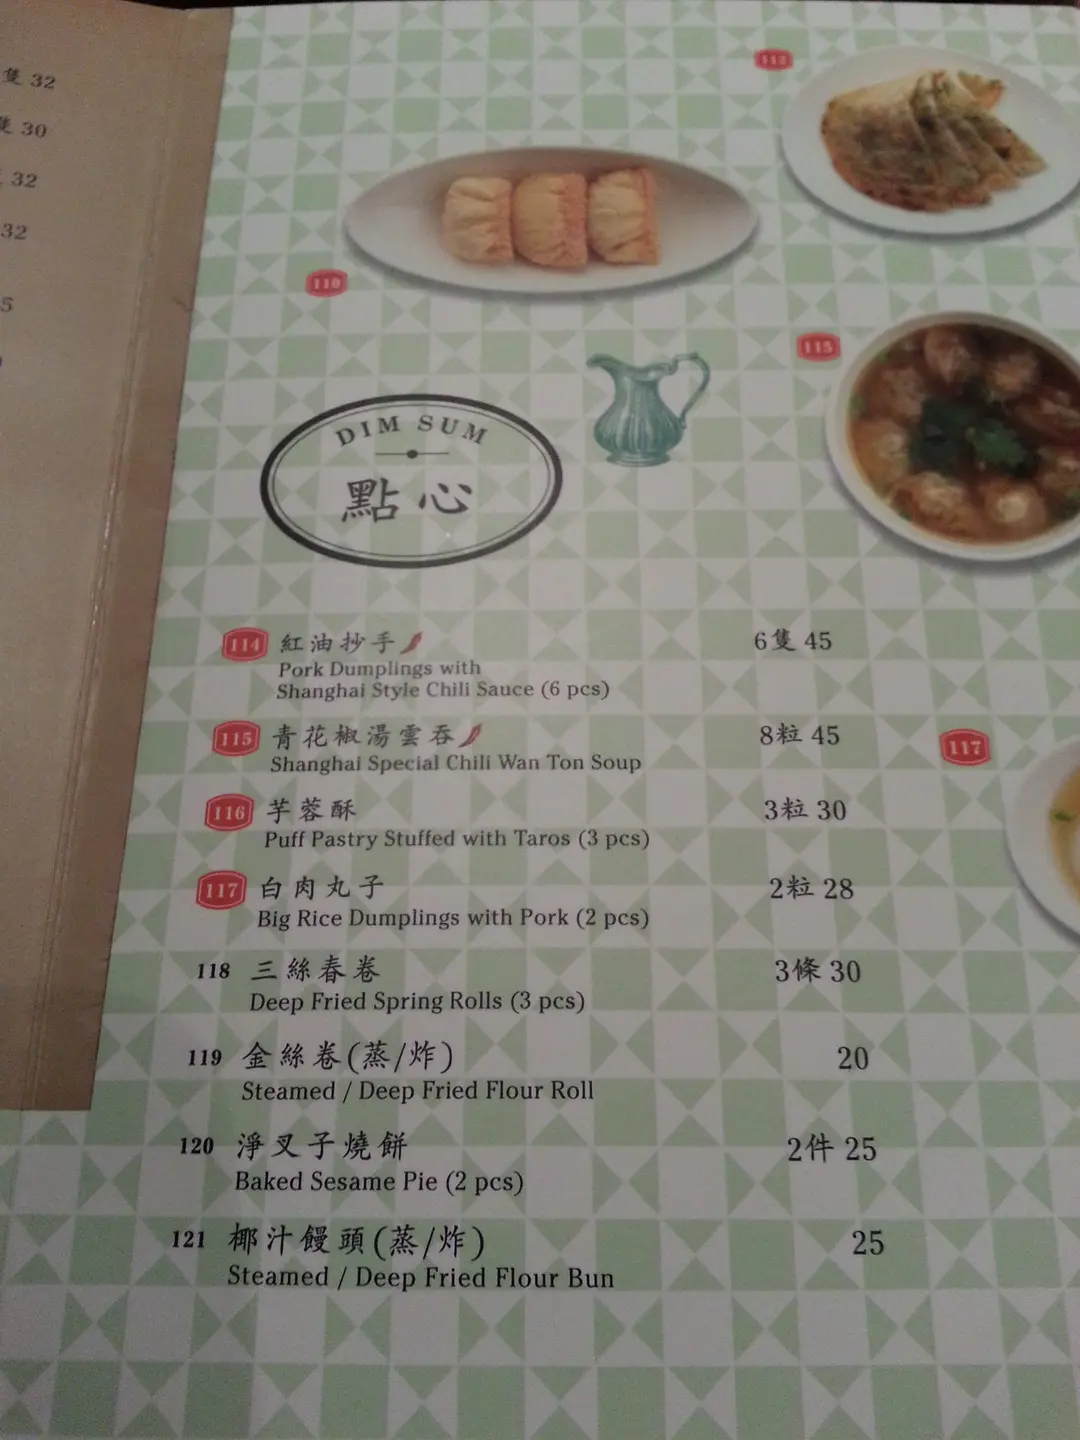 隻 32
隻 30
32
32
5
110
115
DIM SUM
點心
114 紅油抄手 6隻 45
Pork Dumplings with
Shanghai Style Chili Sauce (6 pcs)
115 青花椒湯雲吞 8粒 45
Shanghai Special Chili Wan Ton Soup
116 芋蓉酥 3粒 30
Puff Pastry Stuffed with Taros (3 pcs)
117 白肉丸子 2粒 28
Big Rice Dumplings with Pork (2 pcs)
117
118 三絲春卷 3條 30
Deep Fried Spring Rolls (3 pcs)
119 金絲卷(蒸/炸) 20
Steamed / Deep Fried Flour Roll
120 淨叉子燒餅 2件 25
Baked Sesame Pie (2 pcs)
121 椰汁饅頭(蒸/炸) 25
Steamed / Deep Fried Flour Bun